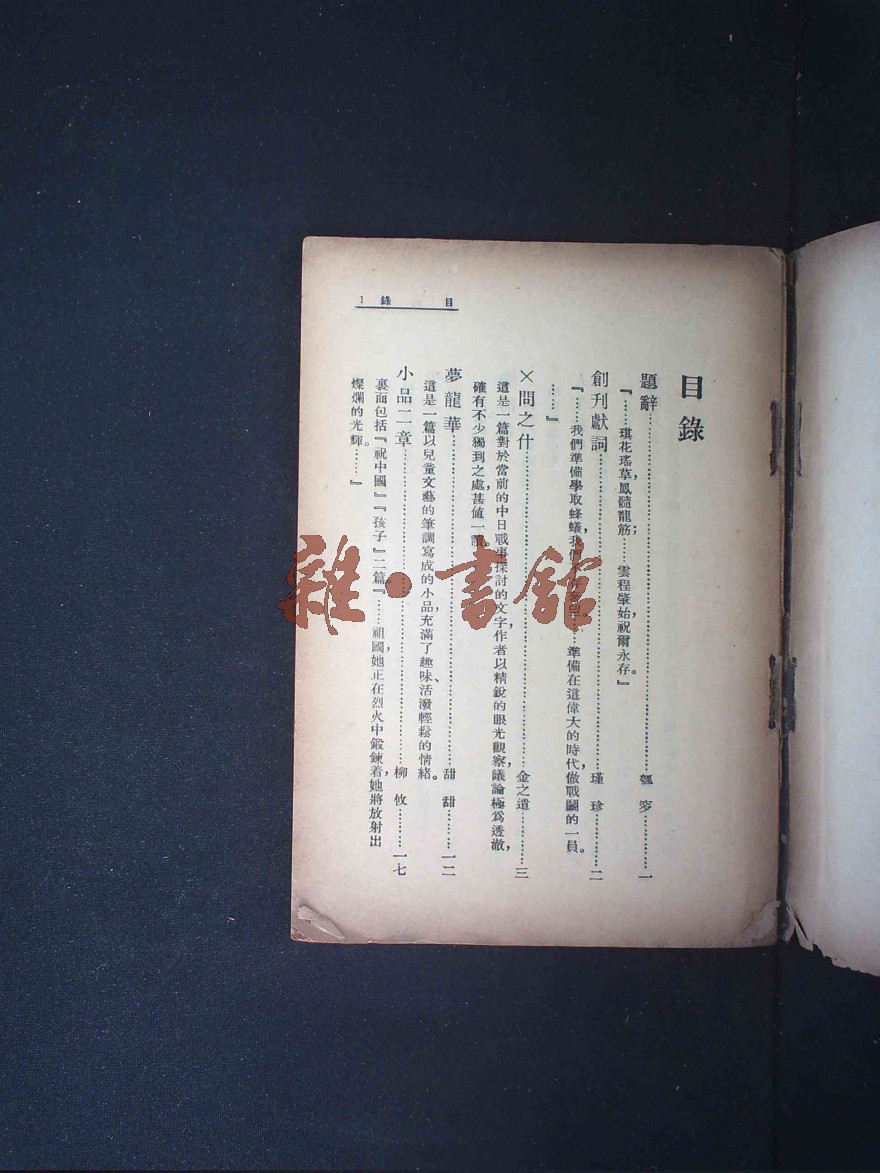 目錄
題辭……一
『……琪花瑤草，鳳髓龍筋；……雲程肇始，祝爾永存。』
創刊獻詞……瑾珍……二
『……我們準備學取蜂蟻，我們……準備在這偉大的時代，做戰鬪的一員。
……』
×問之什……金之遺……三
這是一篇對於當前的中日戰事探討的文字，作者以精銳的眼光觀察，議論極爲透澈，
確有不少獨到之處，甚值一讀。
夢龍華……甜甜……一二
這是一篇以兒童文藝的筆調寫成的小品，充滿了趣味、活潑輕鬆的情緒。
小品二章……柳攸……一七
裏面包括『祝中國』『孩子』二篇。『……祖國，她正在烈火中鍛鍊着，她將放射出
燦爛的光輝。……』
目錄 1
雜·書館